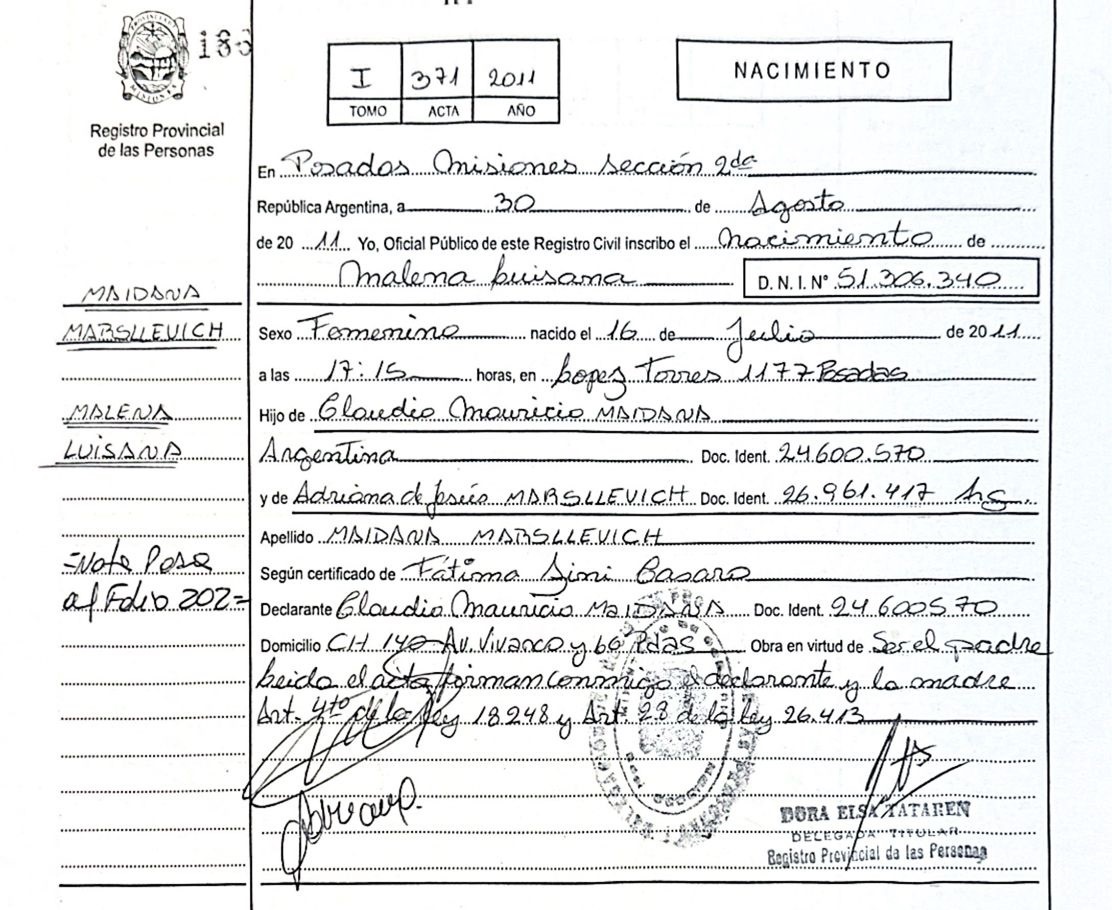 186
Registro Provincial
de las Personas
I 371 2011
TOMO ACTA AÑO
NACIMIENTO
En Posadas Misiones sección 2da
República Argentina, a 30 de Agosto
de 20 11 Yo, Oficial Público de este Registro Civil inscribo el Nacimiento de
Malena Luisana D.N.I.Nº 51.306.340
MAIDANA
MARSLLEVICH
MALENA
LUISANA
=Nota Pasa
al Folio 202=
Sexo Femenino nacido el 16 de Julio de 2011
a las 17:15 horas, en Lopez Torres 1177 Posadas
Hijo de Claudio Mauricio MAIDANA
Argentina Doc. Ident. 24.600.570
y de Adriana de Jesús MARSLLEVICH Doc. Ident. 26.961.417 Arg.
Apellido MAIDANA MARSLLEVICH
Según certificado de Fátima
Declarante Claudio Mauricio MAIDANA Doc. Ident. 24.600570
Domicilio CH 140 Av. Vivanco y 66 Pdas Obra en virtud de Ser el padre
Leida el acta firman conmigo el declarante y la madre
Art. 4to de la Ley 18248 y Art. 28 de la Ley 26.413
DORA ELSA TATAREN
DELEGADA TITULAR
Registro Provincial de las Personas